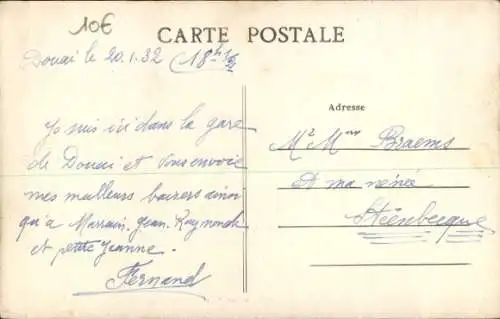 10€
CARTE POSTALE
Douai le 20.1.32 (18h 1/2
Adresse
Je suis ici dans la gare
de Douai et vous envoie
mes meilleurs baisers ainsi
qu'a Marrain. Jean. Raymonde
et petite Jeanne.
Fernand
Mr Mme Braems
et ma nénée
Steenbecque